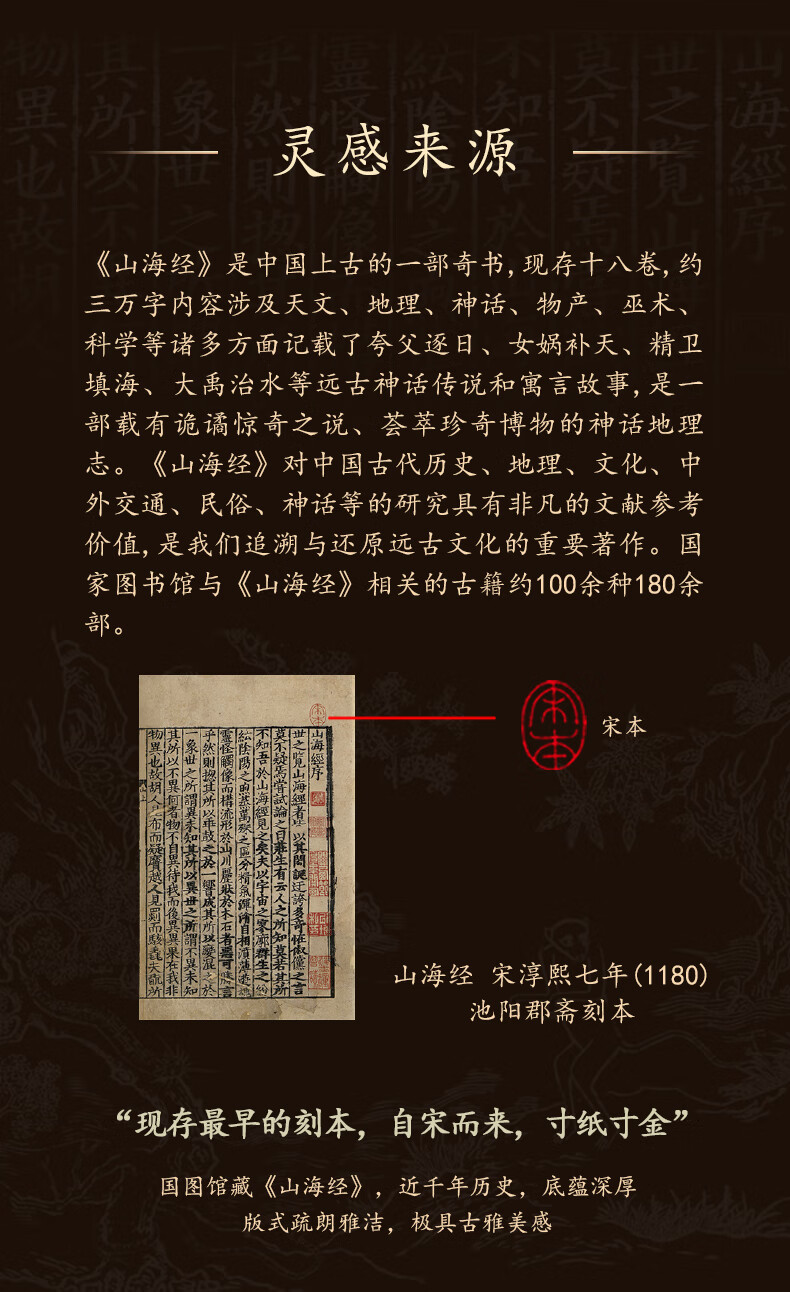 灵感来源
《山海经》是中国上古的一部奇书,现存十八卷,约
三万字内容涉及天文、地理、神话、物产、巫术、
科学等诸多方面记载了夸父逐日、女娲补天、精卫
填海、大禹治水等远古神话传说和寓言故事,是一
部载有诡谲惊奇之说、荟萃珍奇博物的神话地理
志。《山海经》对中国古代历史、地理、文化、中
外交通、民俗、神话等的研究具有非凡的文献参考
价值,是我们追溯与还原远古文化的重要著作。国
家图书馆与《山海经》相关的古籍约100余种180余
部。
宋本
宋本
山海經序
世之覽山海經者皆以其閎誕迂誇多奇怪俶儻之言
莫不疑焉嘗試論之曰莊生有云人之所知莫若其所
不知吾於山海經見之矣夫以宇宙之寥廓群生之紛
紜陰陽之煦蒸萬殊之區分精氣渾淆自相濆薄遊魂
靈怪觸像而構流形於山川麗狀於木石者惡可勝言
乎然則揔其所以乖鼓之於一響成其所以變混之於
一象世之所謂異未知其所以異世之所謂不異未知
其所以不異何者物不自異待我而後異異果在我非
物異也故胡人見布而疑黂越人見罽而駭毳夫翫所
山海经 宋淳熙七年(1180)
池阳郡斋刻本
“现存最早的刻本，自宋而来，寸纸寸金”
国图馆藏《山海经》，近千年历史，底蕴深厚
版式疏朗雅洁，极具古雅美感